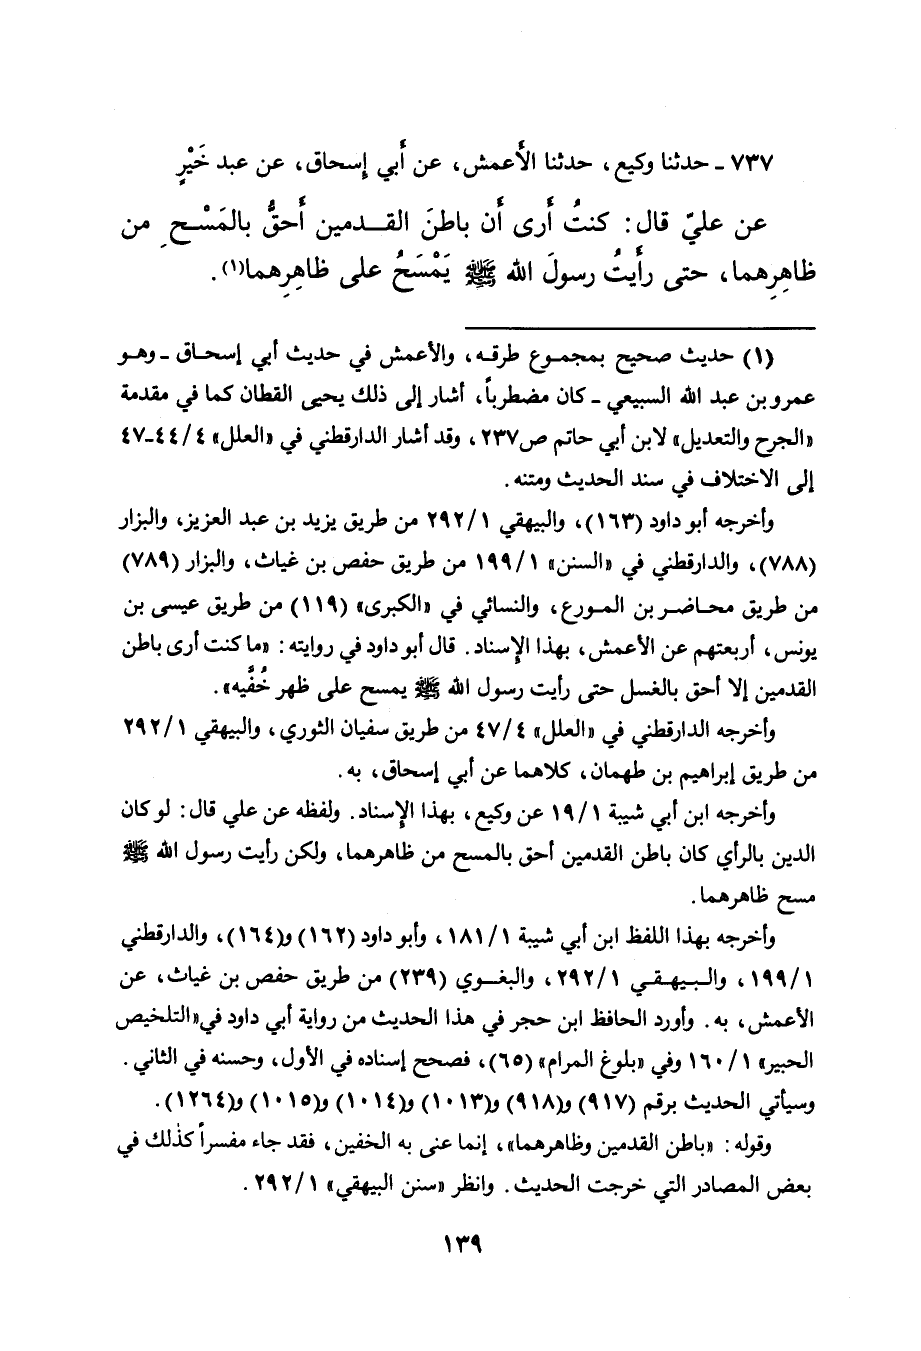 ٧٣٧ ـ حدثنا وكيع، حدثنا الأَعمش، عن أَبي إِسحاق، عن عبد خَيْرٍ
عن عليّ قال: كنتُ أَرى أَن باطنَ القـدمين أَحقُّ بالمَسْحِ من
ظاهِرِهما، حتى رأَيتُ رسولَ الله ﷺ يَمْسَحُ على ظاهِرِهما(١).
(١) حديث صحيح بمجمـوع طرقـه، والأعمش في حديث أبي إسحـاق ـ وهـو
عمرو بن عبد الله السبيعي ـ كان مضطرباً، أشار إلى ذلك يحيى القطان كما في مقدمة
«الجرح والتعديل» لابن أبي حاتم ص٢٣٧، وقد أشار الدارقطني في «العلل» ٤/ ٤٤-٤٧
إلى الاختلاف في سند الحديث ومتنه.
وأخرجه أبو داود (١٦٣)، والبيهقي ١/ ٢٩٢ من طريق يزيد بن عبد العزيز، والبزار
(٧٨٨)، والدارقطني في «السنن» ١/ ١٩٩ من طريق حفص بن غياث، والبزار (٧٨٩)
من طريق محـاضـر بن المـورع، والنسائي في «الكبرى» (١١٩) من طريق عيسى بن
يونس، أربعتهم عن الأعمش، بهذا الإسناد. قال أبو داود في روايته: «ما كنت أرى باطن
القدمين إلا أحق بالغسل حتى رأيت رسول الله ﷺ يمسح على ظهر خُفَّيه».
وأخرجه الدارقطني في «العلل» ٤/ ٤٧ من طريق سفيان الثوري، والبيهقي ١/ ٢٩٢
من طريق إبراهيم بن طهمان، كلاهما عن أبي إسحاق، به.
وأخرجه ابن أبي شيبة ١/ ١٩ عن وكيع، بهذا الإسناد. ولفظه عن علي قال: لو كان
الدين بالرأي كان باطن القدمين أحق بالمسح من ظاهرهما، ولكن رأيت رسول الله ﷺ
مسح ظاهرهما.
وأخرجه بهذا اللفظ ابن أبي شيبة ١/ ١٨١، وأبو داود (١٦٢) و(١٦٤)، والدارقطني
١/ ١٩٩، والـبيهـقـي ١/ ٢٩٢، والبغـوي (٢٣٩) من طريق حفص بن غياث، عن
الأعمش، به. وأورد الحافظ ابن حجر في هذا الحديث من رواية أبي داود في «التلخيص
الحبير» ١/ ١٦٠ وفي «بلوغ المرام» (٦٥)، فصحح إسناده في الأول، وحسنه في الثاني.
وسيأتي الحديث برقم (٩١٧) و(٩١٨) و(١٠١٣) و(١٠١٤) و(١٠١٥) و(١٢٦٤).
وقوله: «باطن القدمين وظاهرهما»، إنما عنى به الخفين، فقد جاء مفسراً كذٰلك في
بعض المصادر التي خرجت الحديث. وانظر «سنن البيهقي» ١/ ٢٩٢.
١٣٩